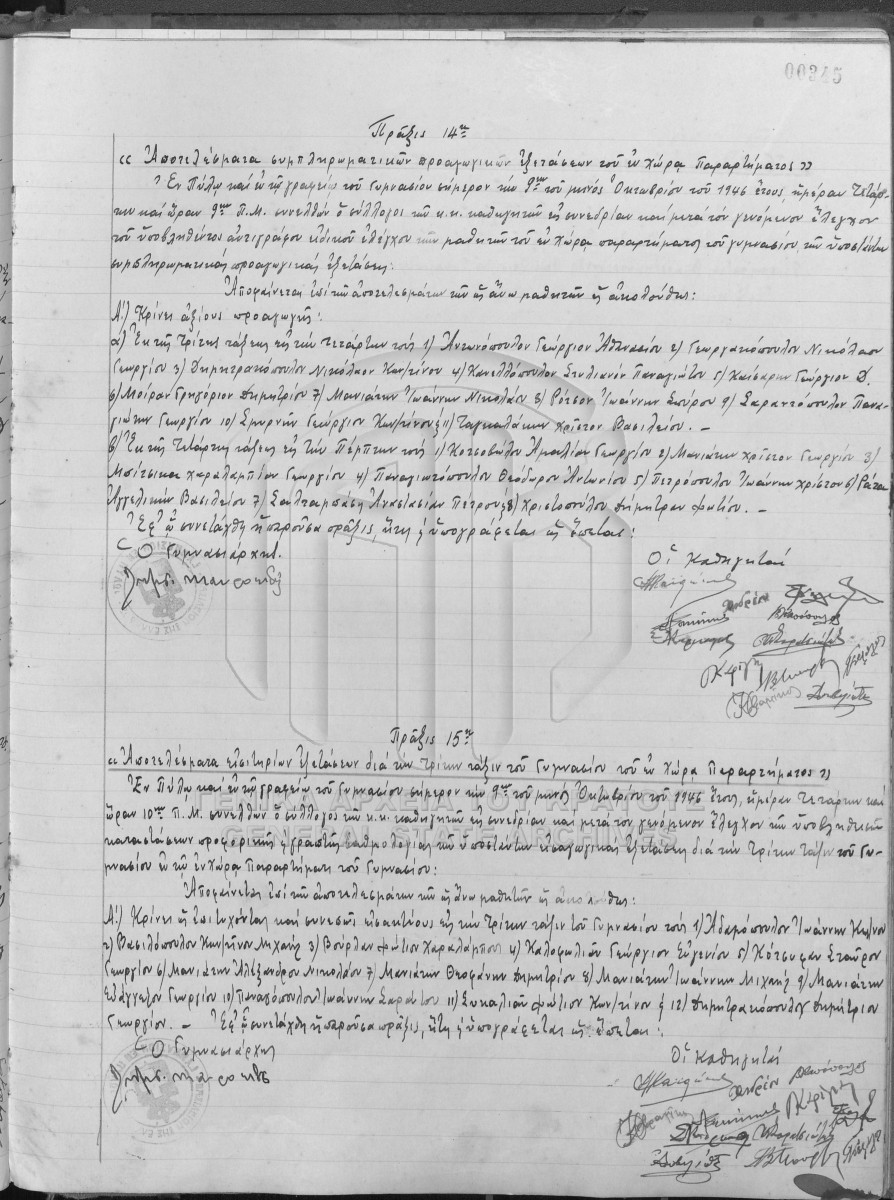 00345
Πρᾶξις 14η
«Ἀποτελέσματα συμπληρωματικῶν προαγωγικῶν ἐξετάσεων τοῦ ἐν Χώρᾳ Παραρτήματος»
Ἐν Πύλῳ καὶ ἐν τῷ γραφείῳ τοῦ Γυμνασίου σήμερον τὴν 9ην τοῦ μηνὸς Ὀκτωβρίου τοῦ 1946 ἔτους, ἡμέραν Τετάρ-
την καὶ ὥραν 9ην Π.Μ. συνελθὼν ὁ σύλλογος τῶν κ.κ. καθηγητῶν εἰς συνεδρίαν καὶ μετὰ τὸν γενόμενον ἔλεγχον
τοῦ ὑποβληθέντος ἀντιγράφου εἰδικοῦ ἐλέγχου τῶν μαθητῶν τοῦ ἐν Χώρᾳ παραρτήματος τοῦ γυμνασίου τῶν ὑποστάντων
συμπληρωματικὰς προαγωγικὰς ἐξετάσεις:
Ἀποφαίνεται ἐπὶ τῶν ἀποτελεσμάτων τῶν ὡς ἄνω μαθητῶν ὡς ἀκολούθως:
Α΄) Κρίνει ἀξίους προαγωγῆς:
α) Ἐκ τῆς τρίτης τάξεως εἰς τὴν τετάρτην τοὺς 1) Ἀντωνόπουλον Γεώργιον Ἀθανασίου 2) Γεωργακόπουλον Νικόλαον
Γεωργίου 3) Δημητρακόπουλον Νικόλαον Κων/τίνου 4) Κανελλόπουλον Στυλιανὸν Παναγιώτου 5) Καίσαρην Γεώργιον Δ.
6) Μοίραν Γρηγόριον Δημητρίου 7) Μανιάτην Ἰωάννην Νικολάου 8) Ρότσον Ἰωάννην Σπύρου 9) Σαραντόπουλον Πανα-
γιώτην Γεωργίου 10) Σμυρνῆν Γεώργιον Κων/τίνου ἑ 11) Ταγκαλάκην Χρῖστον Βασιλείου. –
β) Ἐκ τῆς τετάρτης τάξεως εἰς τὴν Πέμπτην τοὺς 1) Κοτσοβόλου Ἀμαλίαν Γεωργίου 2) Μανιάτην Χρῖστον Γεωργίου 3)
Μπίτσικα Χαραλαμπίαν Γεωργίου 4) Παναγιωτόπουλον Θεόδωρον Ἀντωνίου 5) Πετρόπουλον Ἰωάννην Χρίστου 6)
Ἀγγελικὴν Βασιλείου 7) Σαλταμπάση Ἀναστασίαν Πέτρου ἑ 8) Χριστοπούλου Δήμητραν Φωτίου. –
Ἐφ' ᾧ συνετάχθη ἡ παροῦσα πρᾶξις, ἥτις ὑπογράφεται ὡς ἕπεται:
Ὁ Γυμνασιάρχης
Οἱ Καθηγηταί
Πρᾶξις 15η
«Ἀποτελέσματα εἰσιτηρίων ἐξετάσεων διὰ τὴν τρίτην τάξιν τοῦ Γυμνασίου τοῦ ἐν Χώρᾳ Παραρτήματος»
Ἐν Πύλῳ καὶ ἐν τῷ γραφείῳ τοῦ Γυμνασίου σήμερον τὴν 9ην τοῦ μηνὸς Ὀκτωβρίου τοῦ 1946 ἔτους, ἡμέραν Τετάρτην καὶ
ὥραν 10ην Π.Μ. συνελθὼν ὁ σύλλογος τῶν κ.κ. καθηγητῶν εἰς συνεδρίαν καὶ μετὰ τὸν γενόμενον ἔλεγχον τῶν ὑποβληθεισῶν
καταστάσεων προφορικῆς ἑ γραπτῆς βαθμολογίας τῶν ὑποστάντων εἰσαγωγικὰς ἐξετάσεις διὰ τὴν Τρίτην τάξιν τοῦ Γυ-
μνασίου ἐν τῷ ἐν Χώρᾳ Παραρτήματι τοῦ Γυμνασίου:
ΓΕΝΙΚΑ ΑΡΧΕΙΑ ΤΟΥ ΚΡΑΤΟΥΣ
GENERAL STATE ARCHIVES
Ἀποφαίνεται ἐπὶ τῶν ἀποτελεσμάτων τῶν ὡς ἄνω μαθητῶν ὡς ἀκολούθως:
Α΄) Κρίνει ὡς ἐπιτυχόντας καὶ συνεπῶς εἰσακτέους εἰς τὴν τρίτην τάξιν τοῦ Γυμνασίου τοὺς 1) Ἀδαμόπουλον Ἰωάννην Κων/νου
2) Βασιλόπουλον Κων/τῖνον Μιχαήλ 3) Βούρλαν Φώτιον Χαραλάμπους 4) Καλοφωλιᾶν Γεώργιον Εὐγενίου 5) Κότσυφαν Σταῦρον
Γεωργίου 6) Μανιάτην Ἀλέξανδρον Νικολάου 7) Μανιάτην Θεοφάνην Δημητρίου 8) Μανιάτην Ἰωάννην Μιχαήλ 9) Μανιάτην
Εὐάγγελον Γεωργίου 10) Παναγόπουλον Ἰωάννην Σαράντου 11) Συκαλιᾶν Φώτιον Κων/τίνου ἑ 12) Δημητρακόπουλον Δημήτριον
Γεωργίου. – Ἐφ' ᾧ συνετάχθη ἡ παροῦσα πρᾶξις, ἥτις ὑπογράφεται ὡς ἕπεται:
Ὁ Γυμνασιάρχης
Οἱ καθηγηταί